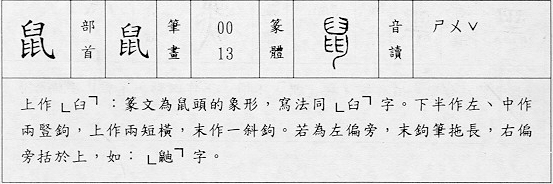 鼠 部首 鼠 筆畫 00 13 篆體 音讀 ㄕㄨˇ
上作「臼」：篆文為鼠頭的象形，寫法同「臼」字。下半作左、中作
兩豎鉤，上作兩短橫，末作一斜鉤。若為左偏旁，末鉤筆拖長，右偏
旁括於上，如：「鼬」字。